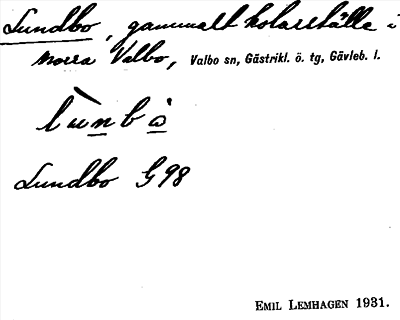 Lundbo, gammalt kolarställe i
norra Valbo, Valbo sn, Gästrikl. ö. tg, Gävleb. l.
lùnbò
Lundbo G98
EMIL LEMHAGEN 1931.